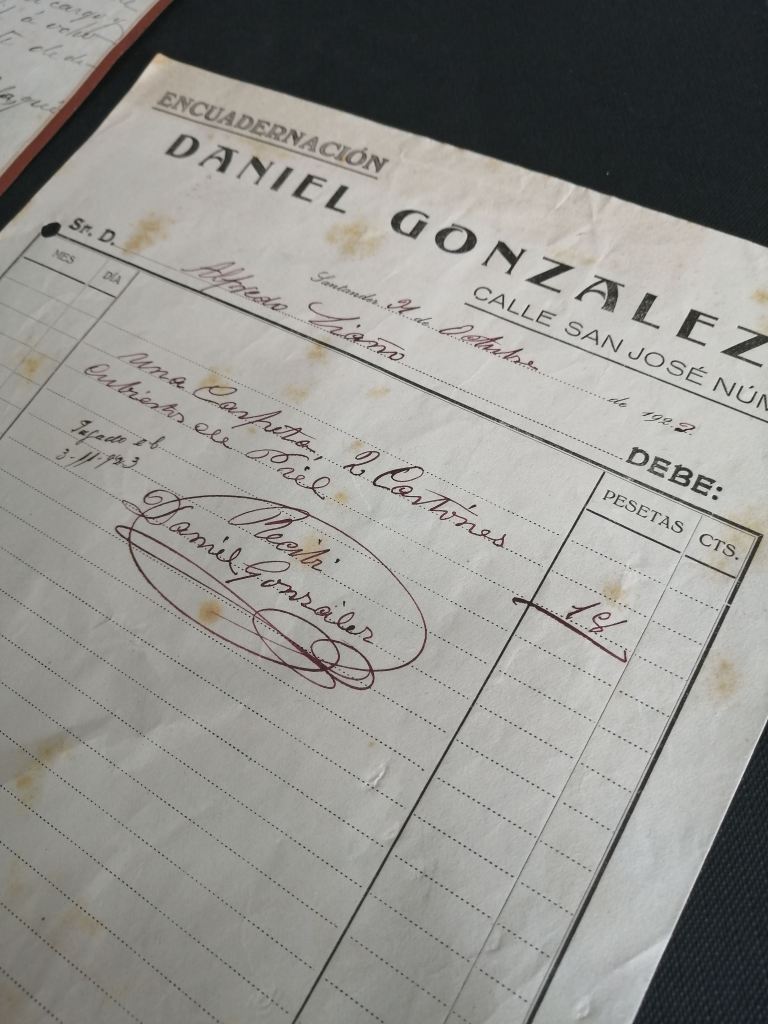 ENCUADERNACIÓN
DANIEL GONZALEZ
CALLE SAN JOSÉ NÚM
Santander 31 de Octubre de 1923.
Sr. D. Alfredo Liaño
DEBE:
MES DÍA PESETAS CTS.
una Carpeta, 2 Cartones
cubiertos de Piel
18
Pagado el
3-11-923
Recibi
Daniel González
cargo y
a ocho